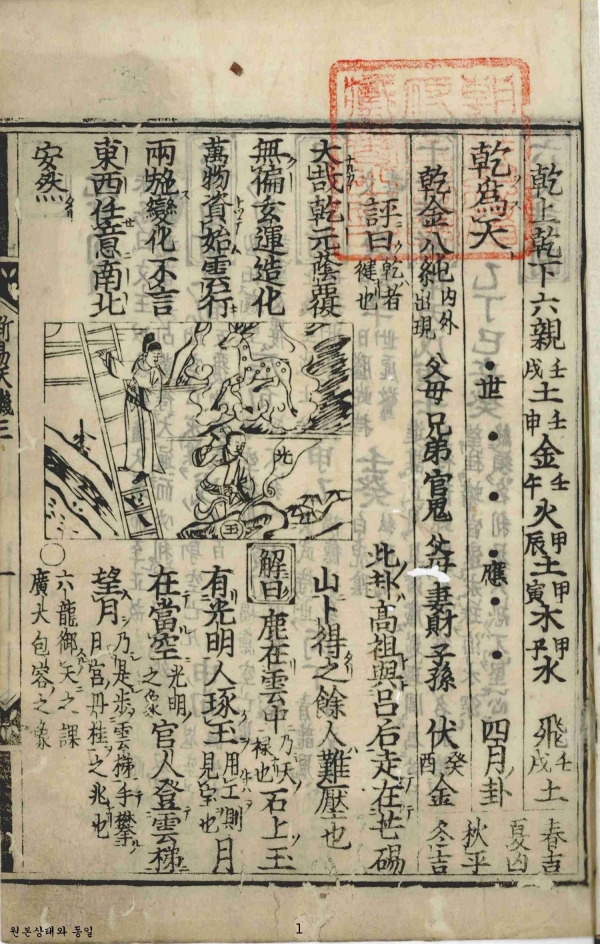 乾上乾下六親 壬戌土 壬申金 壬午火 甲辰土 甲寅木 甲子水 飛壬戌土 春吉 夏凶
乾爲天 世 應 四月卦 秋平
乾金八純 內外出現 父母 兄弟 官鬼 父母 妻財 子孫 伏癸酉金 冬吉
評曰 乾者健也 此卦高祖與呂后走在芒碭
大哉乾元蔭覆 山卜得之餘人難壓也
無偏玄運造化 解曰 鹿在雲中 乃天祿也 石上玉
萬物資始雲行 有光明人琢玉 用工則見宝也 月
兩施變化不言 在當空 光明之象 官人登雲梯
東西任意南北 望月 乃是步雲梯手攀月宮丹桂之兆也
安然 ○ 六龍御天之課 廣大包容之象
光
玉
新
易天機三
一
원본상태와 동일
1